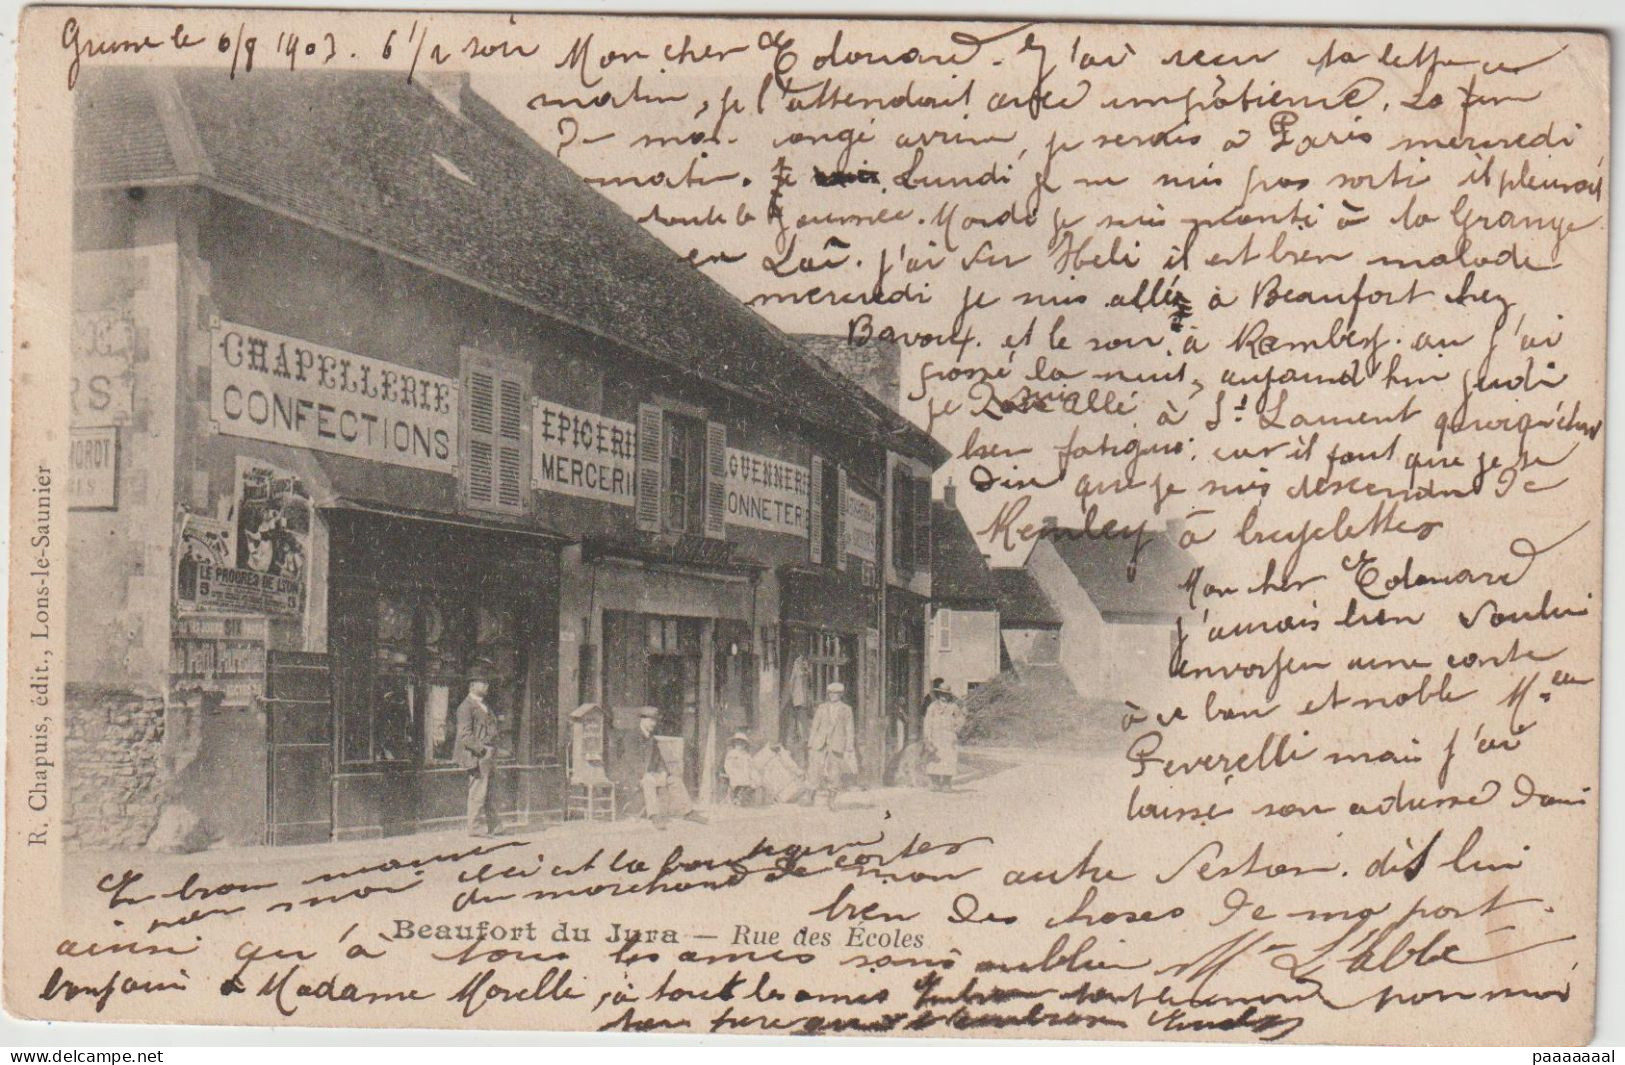 le 6/8 1903. 6 1/2 soir Mon cher Edouard. J'ai recu ta lettre ce
matin, je l'attendait avec impatience. La fin
de mon congé arrive, je serais à Paris mercredi
matin. Je Lundi je ne suis pas sorti il pleuvait
toute la journée. Mardi je suis monté à la Grange
en J'ai vu Heli il est bien malade
mercredi je suis allé à Beaufort chez
et le soir à ou j'ai
passé la nuit, aujourd'hui jeudi
je suis allé à St Laurent quoiqu'étant
bien fatigué; car il faut que je te
dise que je suis descendu de
à bicyclettes
Mon cher Edouard
j'aurais bien voulu
envoyer une carte
à ce bon et noble Mr
Peverelli mais j'ai
laissé son adresse dans
mon autre veston. dis lui
bien des choses de ma part.
ainsi qu'à tous les amis sans oublier Mr L'Abbé
bonjour à Madame Morelli, à tout les amis pour moi
ton père
ceci est la boutique
du marchand de cartes
CHAPELLERIE
CONFECTIONS
EPICERIE
MERCERIE
GUENNERIE
ONNETER
LE PROGRÈS DE LYON
5
R. Chapuis, édit., Lons-le-Saunier
Beaufort du Jura — Rue des Écoles
paaaaaaal